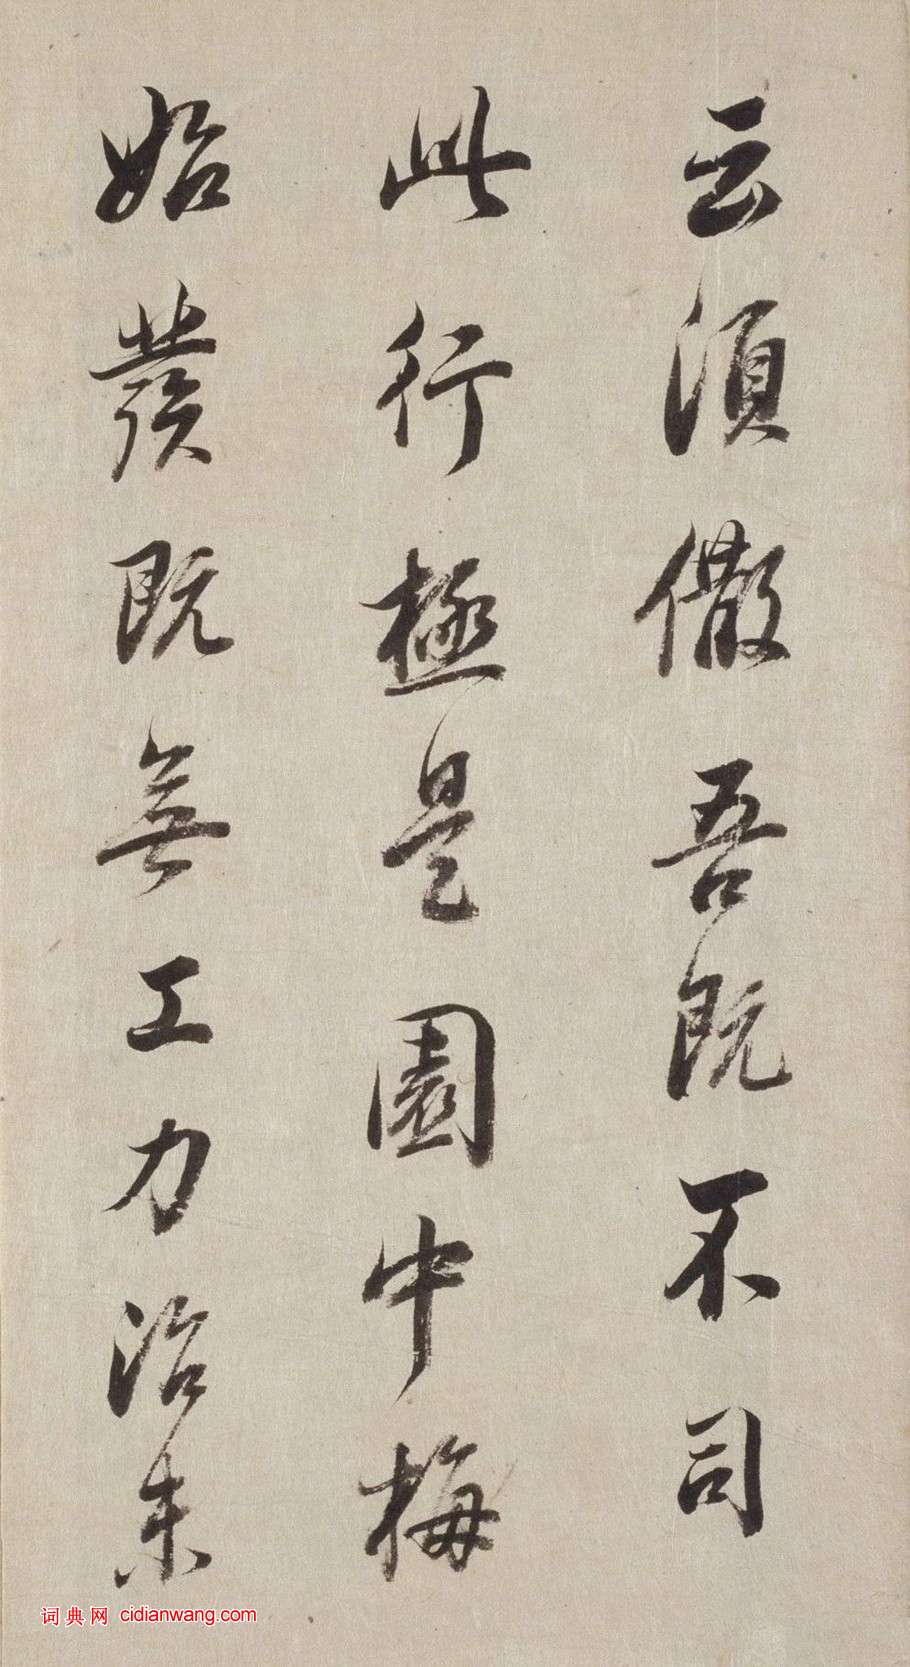 云須儆吾既不司
此行極是園中梅
始發既無工力治未
词典网 cidianwang.com